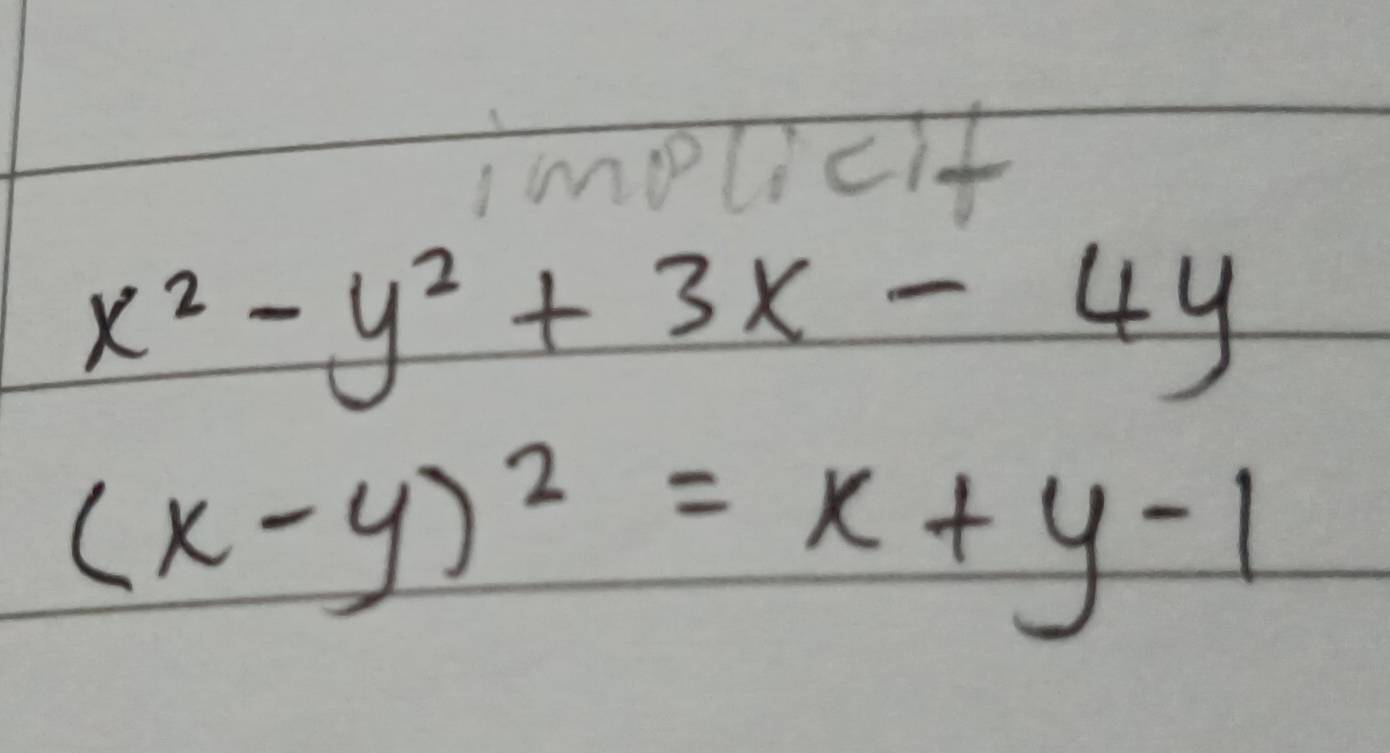 implicit
x² - y² + 3x - 4y
(x - y)² = x + y - 1